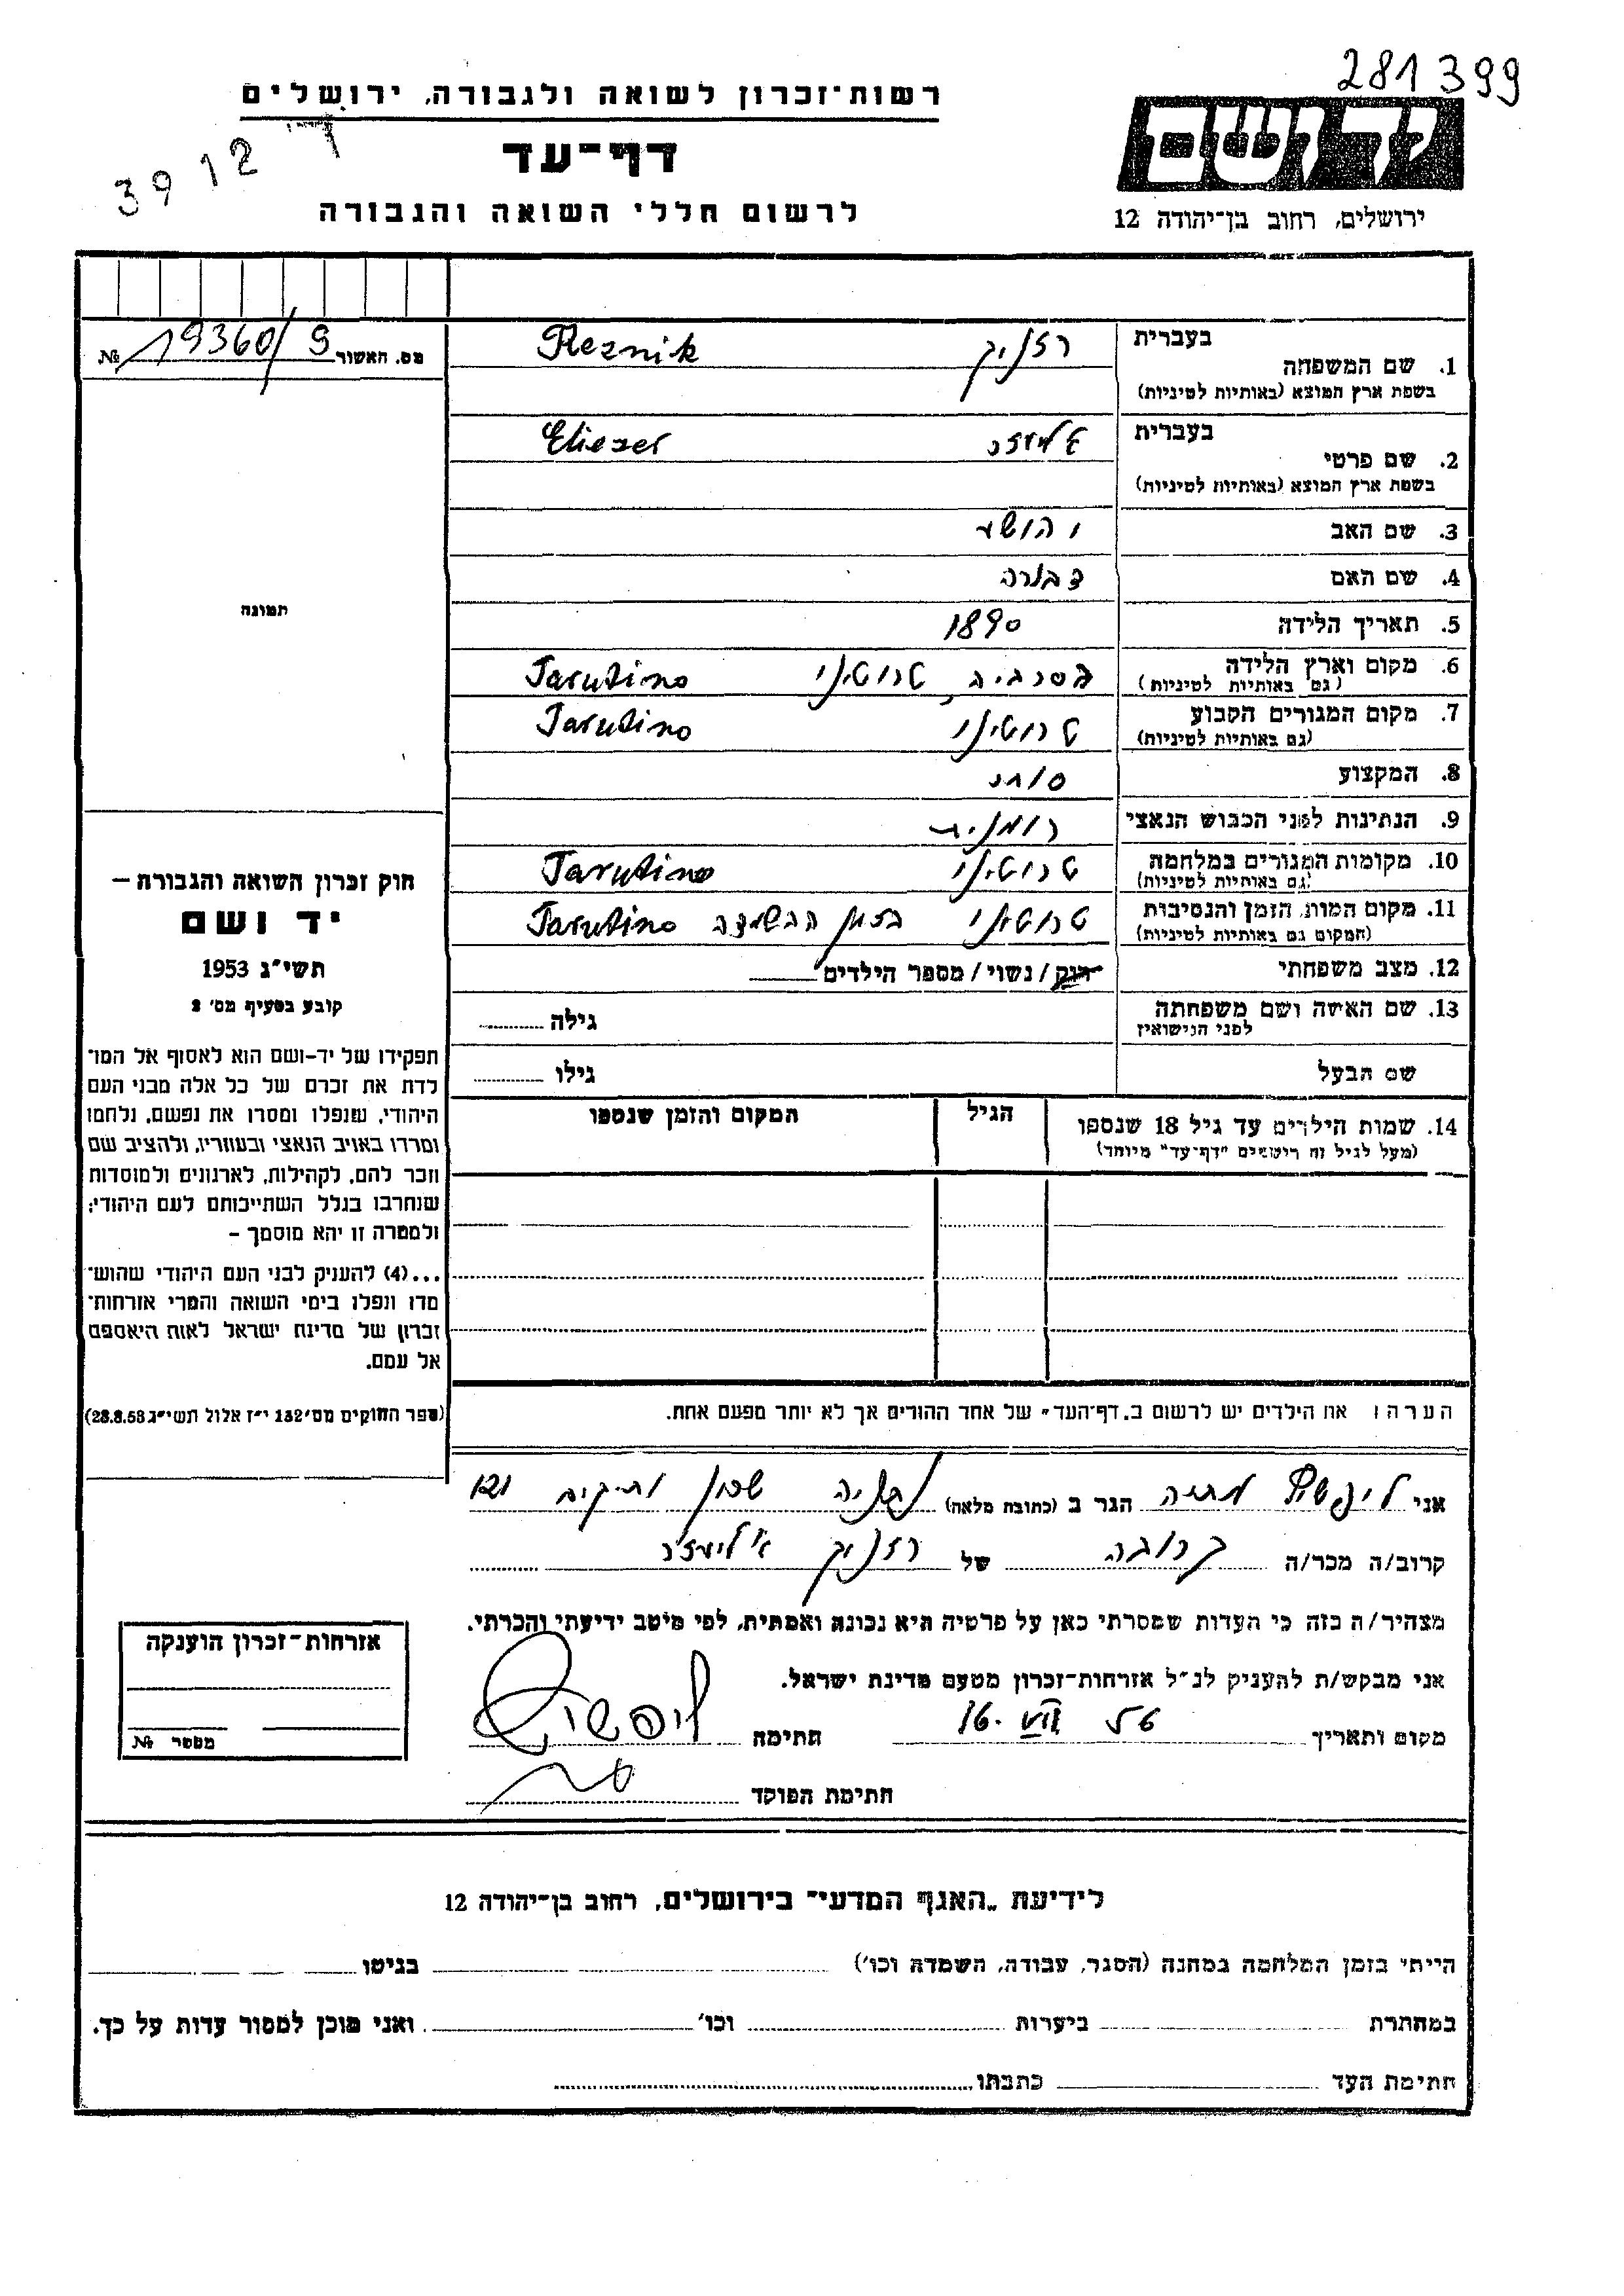 281399
רשות־זכרון לשואה ולגבורה, ירושלים
דף־עד
3912
לרשום חללי השואה והגבורה
ידושם
ירושלים, רחוב בן־יהודה 12
מס. האשור 19360/9 №
בעברית רזניק Reznik
1. שם המשפחה
בשפת ארץ המוצא (באותיות לטיניות)
בעברית Eliezer
2. שם פרטי
בשפת ארץ המוצא (באותיות לטיניות)
3. שם האב יהושע
4. שם האם דבורה
5. תאריך הלידה 1890
6. מקום וארץ הלידה בסרביה, טרוטינו Tarutino
(גם באותיות לטיניות)
7. מקום המגורים הקבוע טרוטינו Tarutino
(גם באותיות לטיניות)
8. המקצוע סוחר
9. הנתינות לפני הכבוש הנאצי רומנית
10. מקומות המגורים במלחמה טרוטינו Tarutino
(גם באותיות לטיניות)
11. מקום המות, הזמן והנסיבות טרוטינו בזמן ההשמדה Tarutino
(המקום גם באותיות לטיניות)
12. מצב משפחתי רווק / נשוי / מספר הילדים
13. שם האישה ושם משפחתה גילה
לפני הנישואין
שם הבעל גילו
14. שמות הילדים עד גיל 18 שנספו הגיל המקום והזמן שנספו
(מעל לגיל זה רושמים "דף־עד" מיוחד)
תמונה
חוק זכרון השואה והגבורה –
יד ושם
תשי"ג 1953
קובע בסעיף מס' 2
תפקידו של יד-ושם הוא לאסוף אל המו־
לדת את זכרם של כל אלה מבני העם
היהודי, שנפלו ומסרו את נפשם, נלחמו
ומרדו באויב הנאצי ובעוזריו, ולהציב שם
וזכר להם, לקהילות, לארגונים ולמוסדות
שנחרבו בגלל השתייכותם לעם היהודי;
ולמטרה זו יהא מוסמך –
...(4) להעניק לבני העם היהודי שהוש־
מדו ונפלו בימי השואה והמרי אזרחות־
זכרון של מדינת ישראל לאות היאספם
אל עמם.
(ספר החוקים מס' 132 י"ז אלול תשי"ג 28.8.53)
הערה: את הילדים יש לרשום ב„דף־העד" של אחד ההורים אך לא יותר מפעם אחת.
אני הגר ב (כתובת מלאה) נתניה שכון ותיקים 121
קרוב/ה מכר/ה קרובה של רזניק אליעזר
מצהיר/ה בזה כי העדות שמסרתי כאן על פרטיה היא נכונה ואמתית, לפי מיטב ידיעתי והכרתי.
אני מבקש/ת להעניק לנ"ל אזרחות־זכרון מטעם מדינת ישראל.
מקום ותאריך 16. VII 56 חתימה
חתימת הפוקד
אזרחות־זכרון הוענקה
מספר №
לידיעת „האגף המדעי" בירושלים, רחוב בן־יהודה 12
הייתי בזמן המלחמה במחנה (הסגר, עבודה, השמדה וכו') בגיטו
במחתרת ביערות וכו' ואני מוכן למסור עדות על כך.
חתימת העד כתבתו